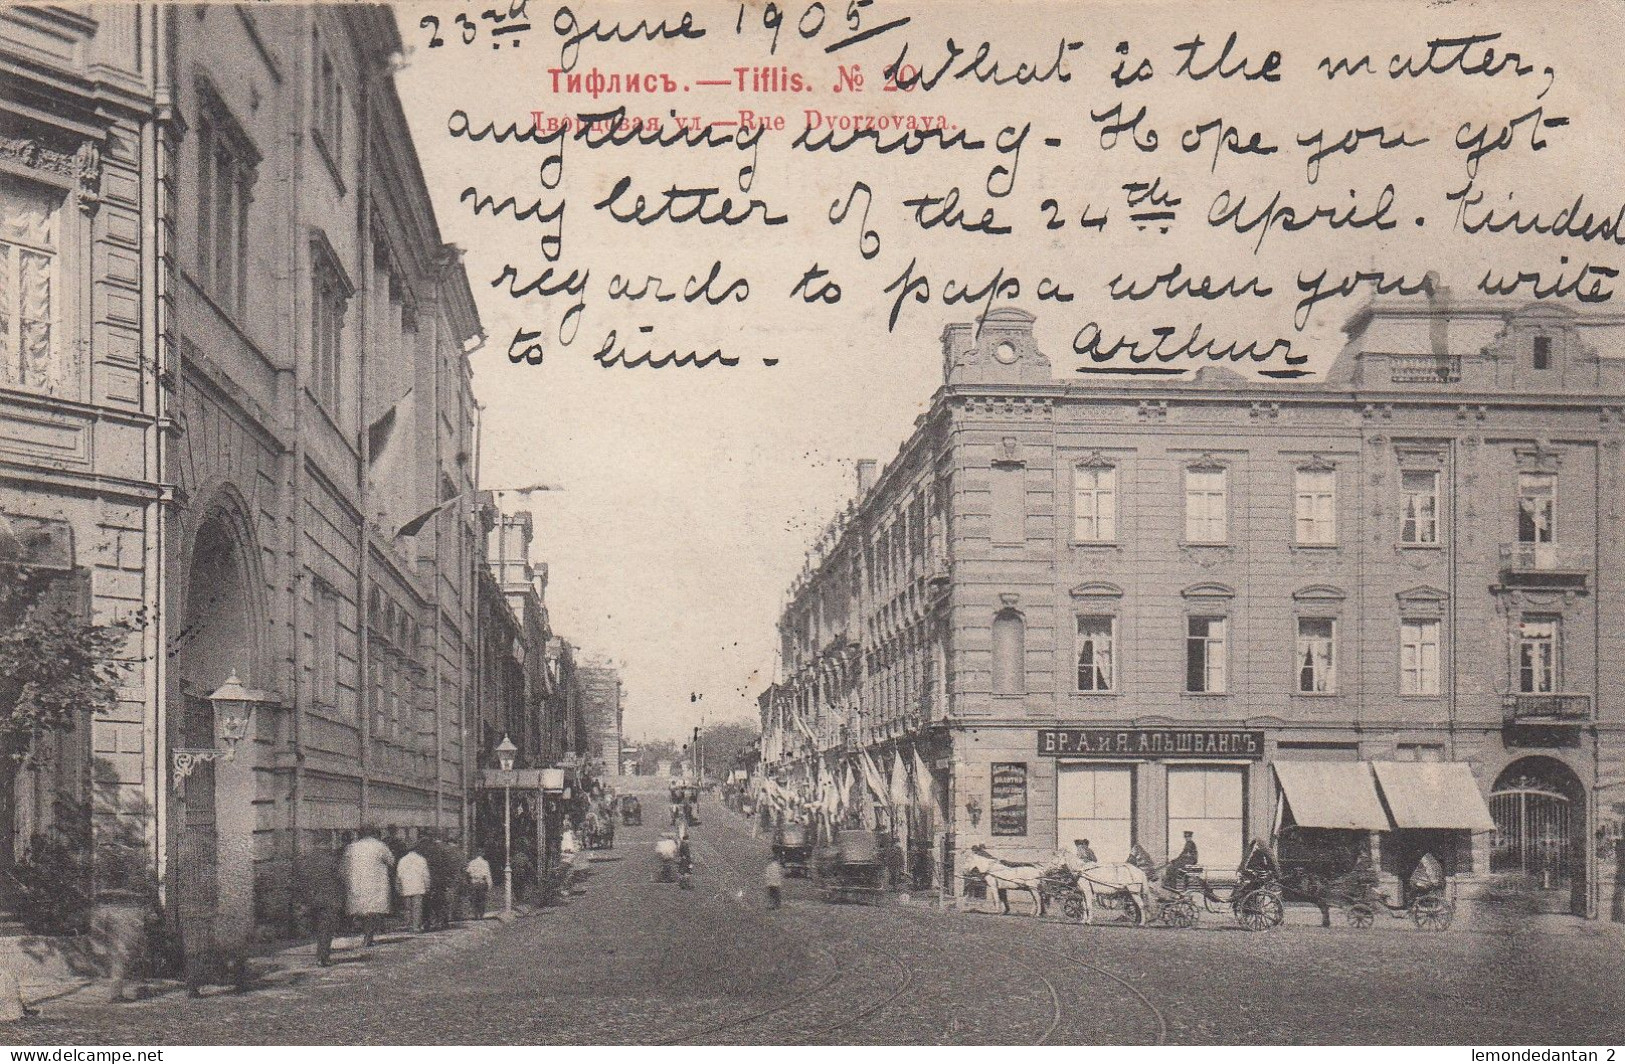 23rd June 1905
Тифлисъ.—Tiflis. № 20
What is the matter,
Дворцовая ул.—Rue Dvorzovaya.
anything wrong - Hope you got
my letter of the 24th April. Kindest
regards to papa when you write
to him -
Arthur
БР. А. и Я. АЛЬШВАНГЪ
www.delcampe.net
lemondedantan_2